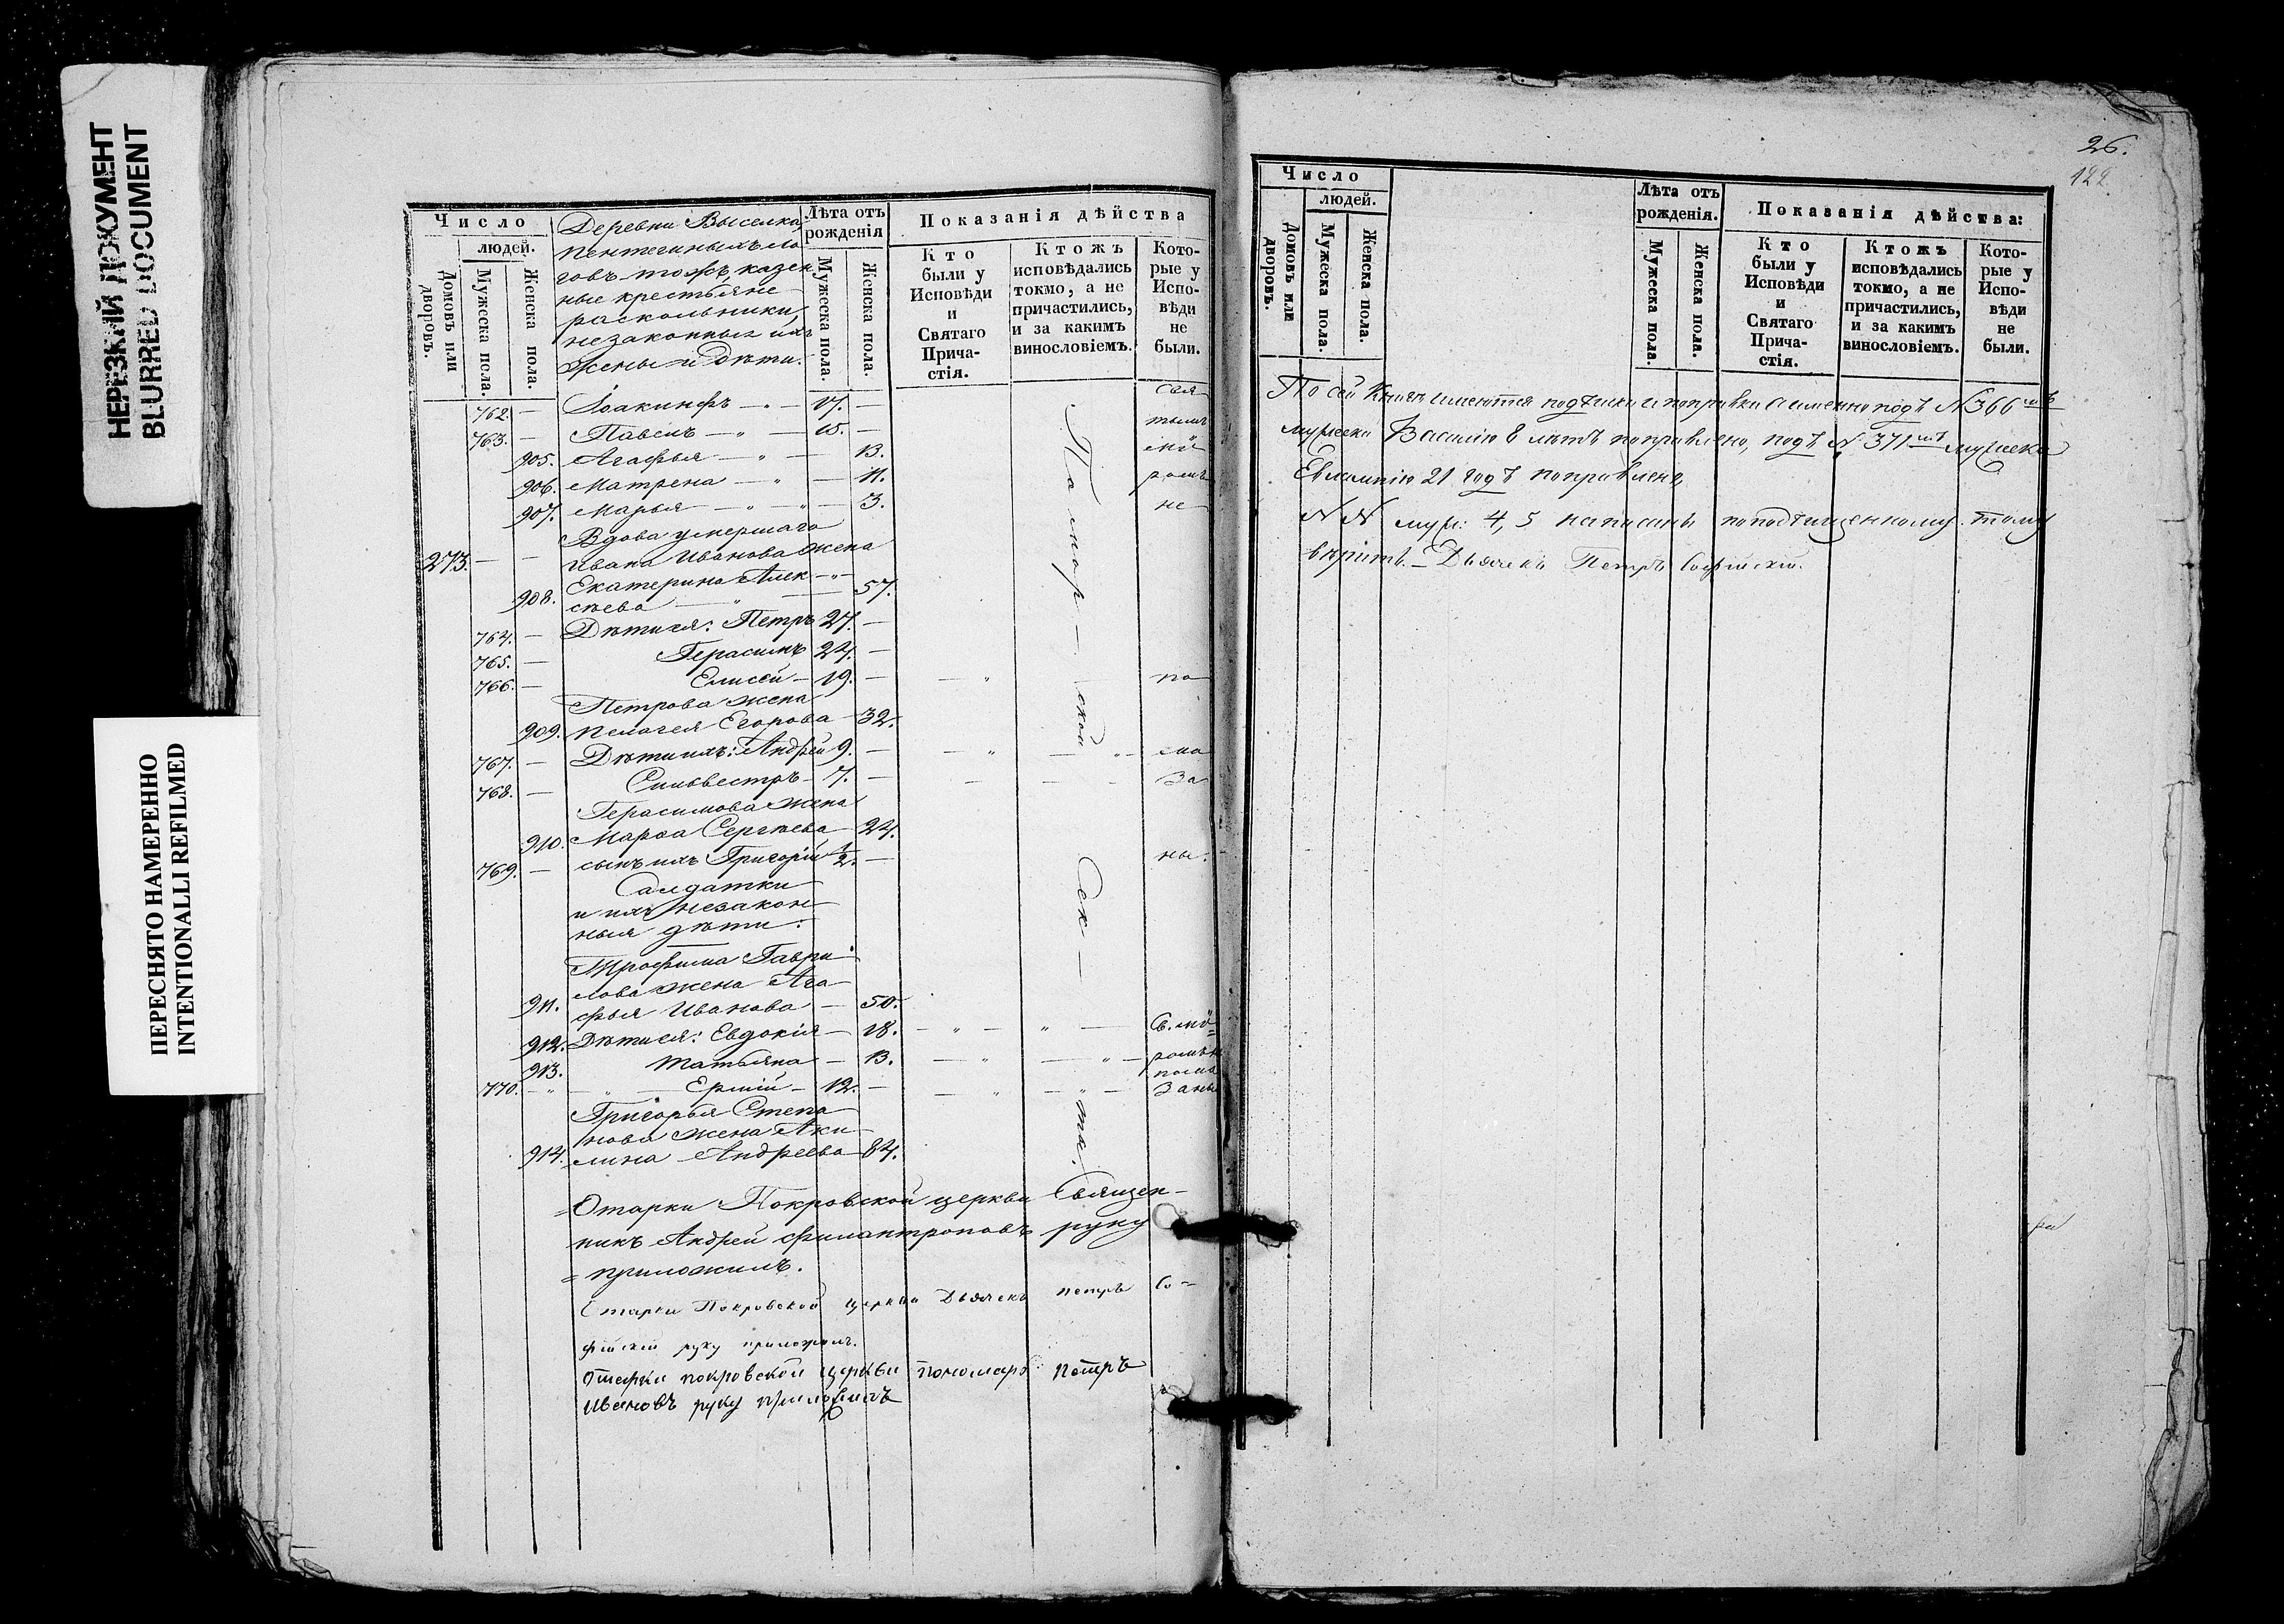 НЕРЕЗКИЙ ДОКУМЕНТ
BLURRED DOCUMENT
ПЕРЕСНЯТО НАМЕРЕННО
INTENTIONALLI REFILMED
Число
людей.
Домовъ или дворовъ.
Мужеска пола.
Женска пола.
Деревни Выселка
говъ тожъ, казен
ные крестьяне
раскольники,
незаконныя ихъ
жены и дѣти.
Лѣта отъ рожденія
Мужеска пола.
Женска пола.
Показанія дѣйства
Кто были у Исповѣди и Святаго Причастія.
Ктожъ исповѣдались токмо, а не причастились, и за какимъ винословіемъ.
Которые у Исповѣди не были.
762. — Іоакинфъ — „ — 17. —
763. — Павелъ — „ — 15. —
905. Агафья — „ — 13.
906. Матрена — „ — 11.
907. Марья — „ — „ — 3.
не
Вдова умершаго
273. — — Ивана Иванова жена
Екатерина Алек — „ —
908. сѣева — „ — 57.
764. — Дѣти ея: Петръ 27. —
765. — Герасимъ 24. —
766. — Елисей — 19. — — „ по
Петрова жена
909. Пелагея Егорова — 32.
767. — Дѣти ихъ: Андрей 9. —
768. — Сильвестръ — 7. — за
Герасимова жена
910. Марѳа Сергѣева — 24.
769. — сынъ ихъ Григорій 1/2. — ны.
Салдатки
и ихъ незакон
ныя дѣти:
Трофима Гаври
лова жена Ага
911. фья Иванова — 50.
912. Дѣти ея: Евдокія — 18. — „ — „ —
913. Татьяна — 13. — „ — „ —
770. — „ — „ — Ермій — 12. — — „ — „ — заны
Григорья Степа
нова жена Аки
914. лина Андреева — 84.
Помор — ской
Сек — ты.
Старки Покровской церкви Священ-
никъ Андрей Филантроповъ руку
приложилъ.
Старки Покровской церкви Дьячекъ Петръ Со-
фійскій руку приложилъ.
Старки покровской церкви пономарь Петръ
Ивановъ руку приложилъ
26.
122.
Число
людей.
Домовъ или дворовъ.
Мужеска пола.
Женска пола.
Лѣта отъ рожденія.
Мужеска пола.
Женска пола.
Показанія дѣйства:
Кто были у Исповѣди и Святаго Причастія.
Ктожъ исповѣдались токмо, а не причастились, и за какимъ винословіемъ.
Которые у Исповѣди не были.
По сей книгѣ имеются подчиски и поправки а именно подъ № 366мъ
мужеска Василію 8 лѣтъ поправлено, подъ № 371мъ мужеска
Евлампію 21 годъ поправлено,
№ № муж: 4, 5 написанъ по подчищенному. тому
вѣрить. — Дьячекъ Петръ Софійскій.